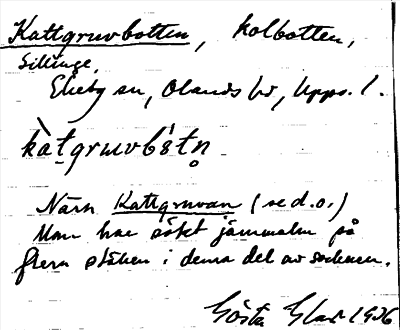 Kattgruvbotten, kolbotten,
Sillinge,
Ekeby sn, Olands hd, Upps. l.
kàtgruvbótn
Nära Kattgruvan (se d.o.)
Man har sökt järnmalm på
flera ställen i denna del av socknen.
Gösta 1926